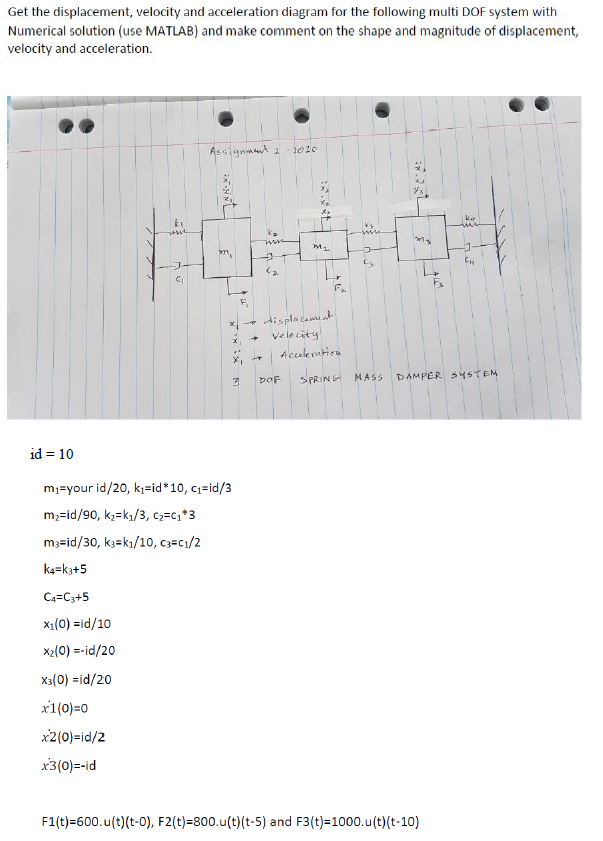 Get the displacement, velocity and acceleration diagram for the following multi DOF system with
Numerical solution (use MATLAB) and make comment on the shape and magnitude of displacement,
velocity and acceleration.
Assignment 2 - 2020
ẍ₁
ẋ₁
x₁
ẍ₂
ẋ₂
x₂
ẍ₃
ẋ₃
x₃
k₁
k₂
k₃
k₄
m₁
m₂
m₃
c₁
c₂
c₃
c₄
F₁
F₂
F₃
x₁ → displacement
ẋ₁ → Velocity
ẍ₁ → Acceleration
3 DOF SPRING MASS DAMPER SYSTEM
id = 10
m₁=your id/20, k₁=id*10, c₁=id/3
m₂=id/90, k₂=k₁/3, c₂=c₁*3
m₃=id/30, k₃=k₁/10, c₃=c₁/2
k₄=k₃+5
C₄=C₃+5
x₁(0) =id/10
x₂(0) =-id/20
x₃(0) =id/20
ẋ1(0)=0
ẋ2(0)=id/2
ẋ3(0)=-id
F1(t)=600.u(t)(t-0), F2(t)=800.u(t)(t-5) and F3(t)=1000.u(t)(t-10)